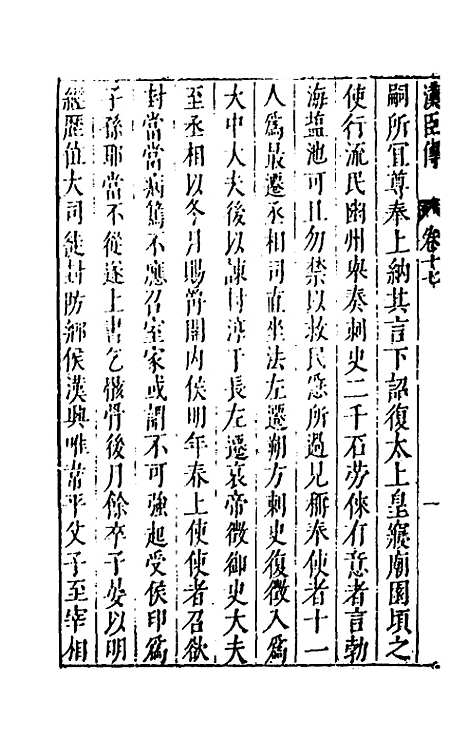 漢臣傳 卷十七 一
嗣所宜尊奉上納其言下詔復太上皇寢廟園頃之
使行流民幽州舉奏刺史二千石勞倈有意者言勃
海盐池可且勿禁以救民急所過見稱奉使者十一
人爲最遷丞相司直坐法左遷朔方刺史復徵入爲
大中大夫後以諫封淳于長左遷哀帝徵御史大夫
至丞相以冬月賜爵關內侯明年春上使使者召欲
封當當病篤不應召室家或謂不可強起受侯印爲
子孫耶當不從遂上書乞骸骨後月餘卒子晏以明
經歷位大司徒封防鄉侯漢興唯韋平父子至宰相